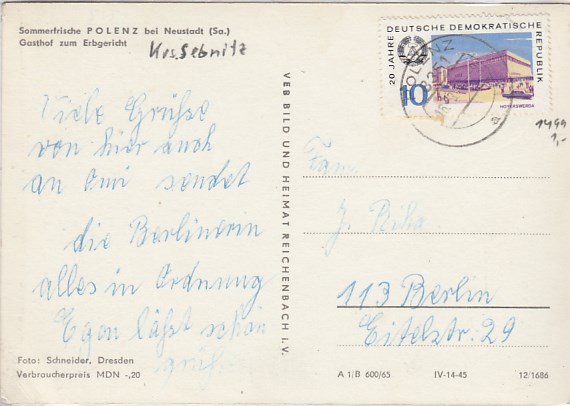 Sommerfrische POLENZ bei Neustadt (Sa.)
Gasthof zum Erbgericht
Krs. Sebnitz
Viele Grüße
von hier auch
an Omi sendet
die Berlinerin
alles in Ordnung
Egon läßt schön
grüß
Foto: Schneider, Dresden
Verbraucherpreis MDN -,20
VEB BILD UND HEIMAT REICHENBACH i. V.
20 JAHRE DEUTSCHE DEMOKRATISCHE REPUBLIK
10
HOYERSWERDA
POLENZ
1499
1,-
Fam
113 Berlin
Eitelstr. 29
A 1/B 600/65 IV-14-45 12/1686